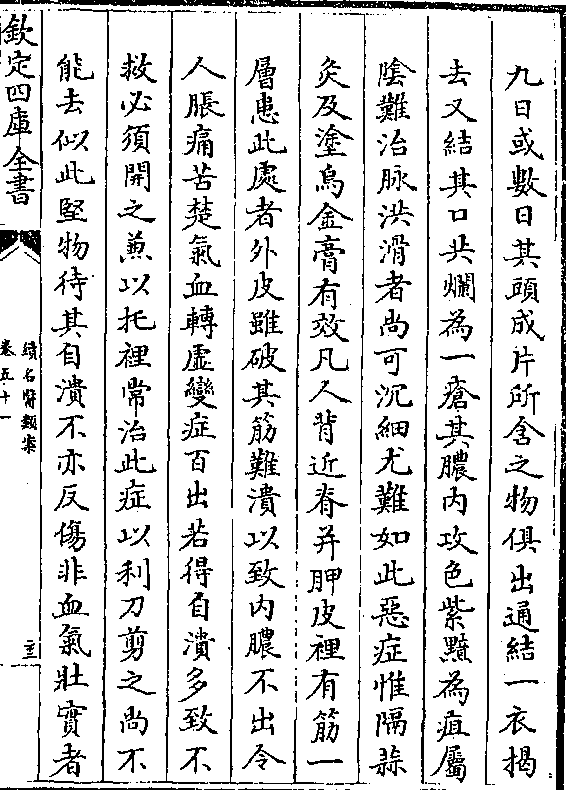 九日或數日其頭成片所含之物俱出通結一衣揭
去又結其口共爛為一瘡其膿内攻色紫黯為疽屬
陰難治脉洪滑者尚可沉細尤難如此惡症惟隔蒜
灸及塗烏金膏有效凡人背近脊并胛皮裡有筋一
層患此處者外皮雖破其筋難潰以致内膿不出令
人脹痛苦楚氣血轉虛變症百出若得自潰多致不
救必須開之兼以托裡常治此症以利刀剪之尚不
能去似此堅物待其自潰不亦反傷非血氣壯實者
欽定四庫全書
續名醫類案
卷五十一